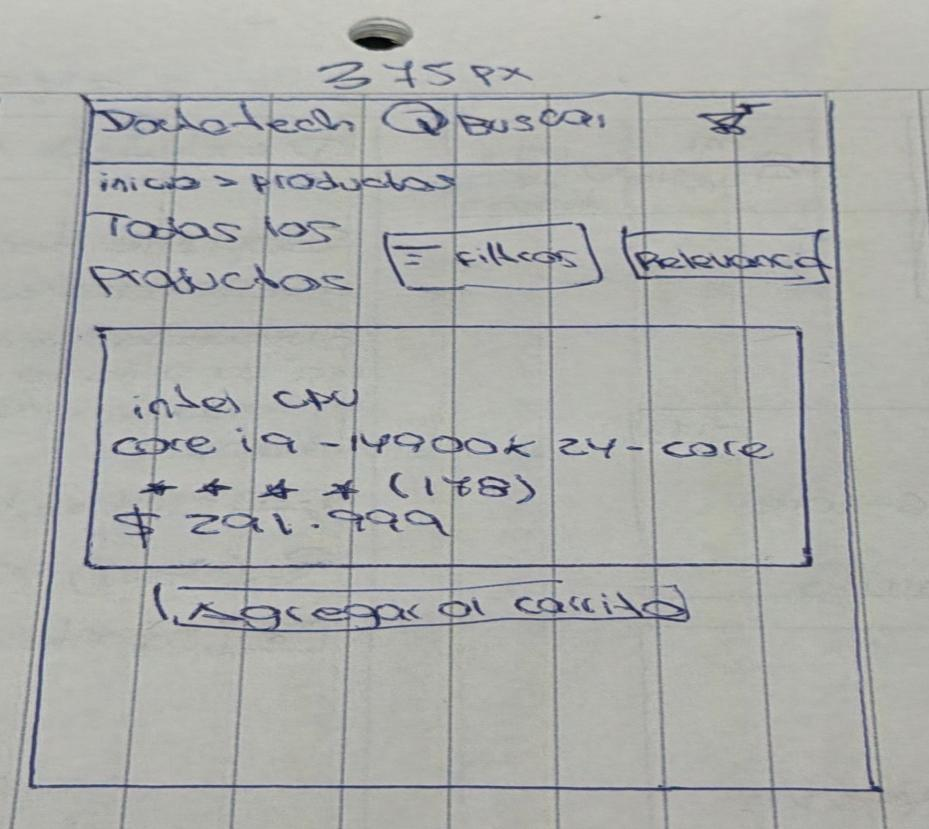 375px
Datatech Buscar
inicio > productos
Todos los
Productos
= Filtros
Relevancia
intel CPU
core i9 -14900K 24-core
★ ★ ★ ★ (178)
$ 291.999
Agregar al carrito